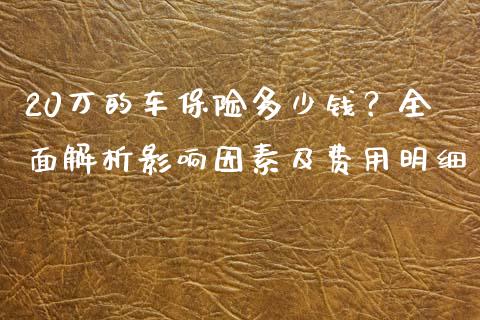 20万的车保险多少钱？全
面解析影响因素及费用明细